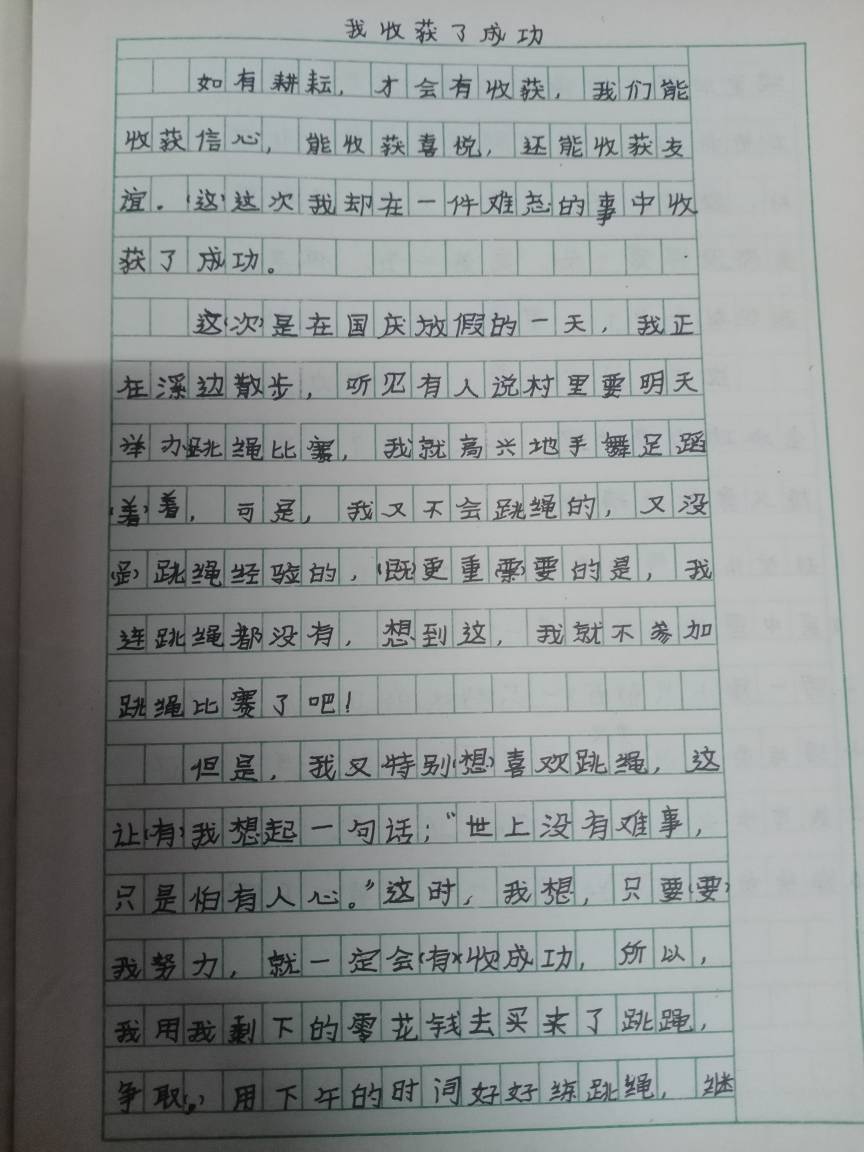 我收获了成功
如有耕耘，才会有收获，我们能
收获信心，能收获喜悦，还能收获友
谊。(这)这次我却在一件难忘的事中收
获了成功。
这(次)是在国庆放假的一天，我正
在溪边散步，听见有人说村里要明天
举办跳绳比赛，我就高兴地手舞足蹈
(着)着，可是，我又不会跳绳的，又没
(是)跳绳经验的，(既)更重要(要)的是，我
连跳绳都没有，想到这，我就不参加
跳绳比赛了吧！
但是，我又特别(想)喜欢跳绳，这
让(有)我想起一句话；“世上没有难事，
只是怕有人心。”这时，我想，只要(要)
我努力，就一定会(有)(收)成功，所以，
我用我剩下的零花钱去买来了跳绳，
争取(，)用下午的时间好好练跳绳，继